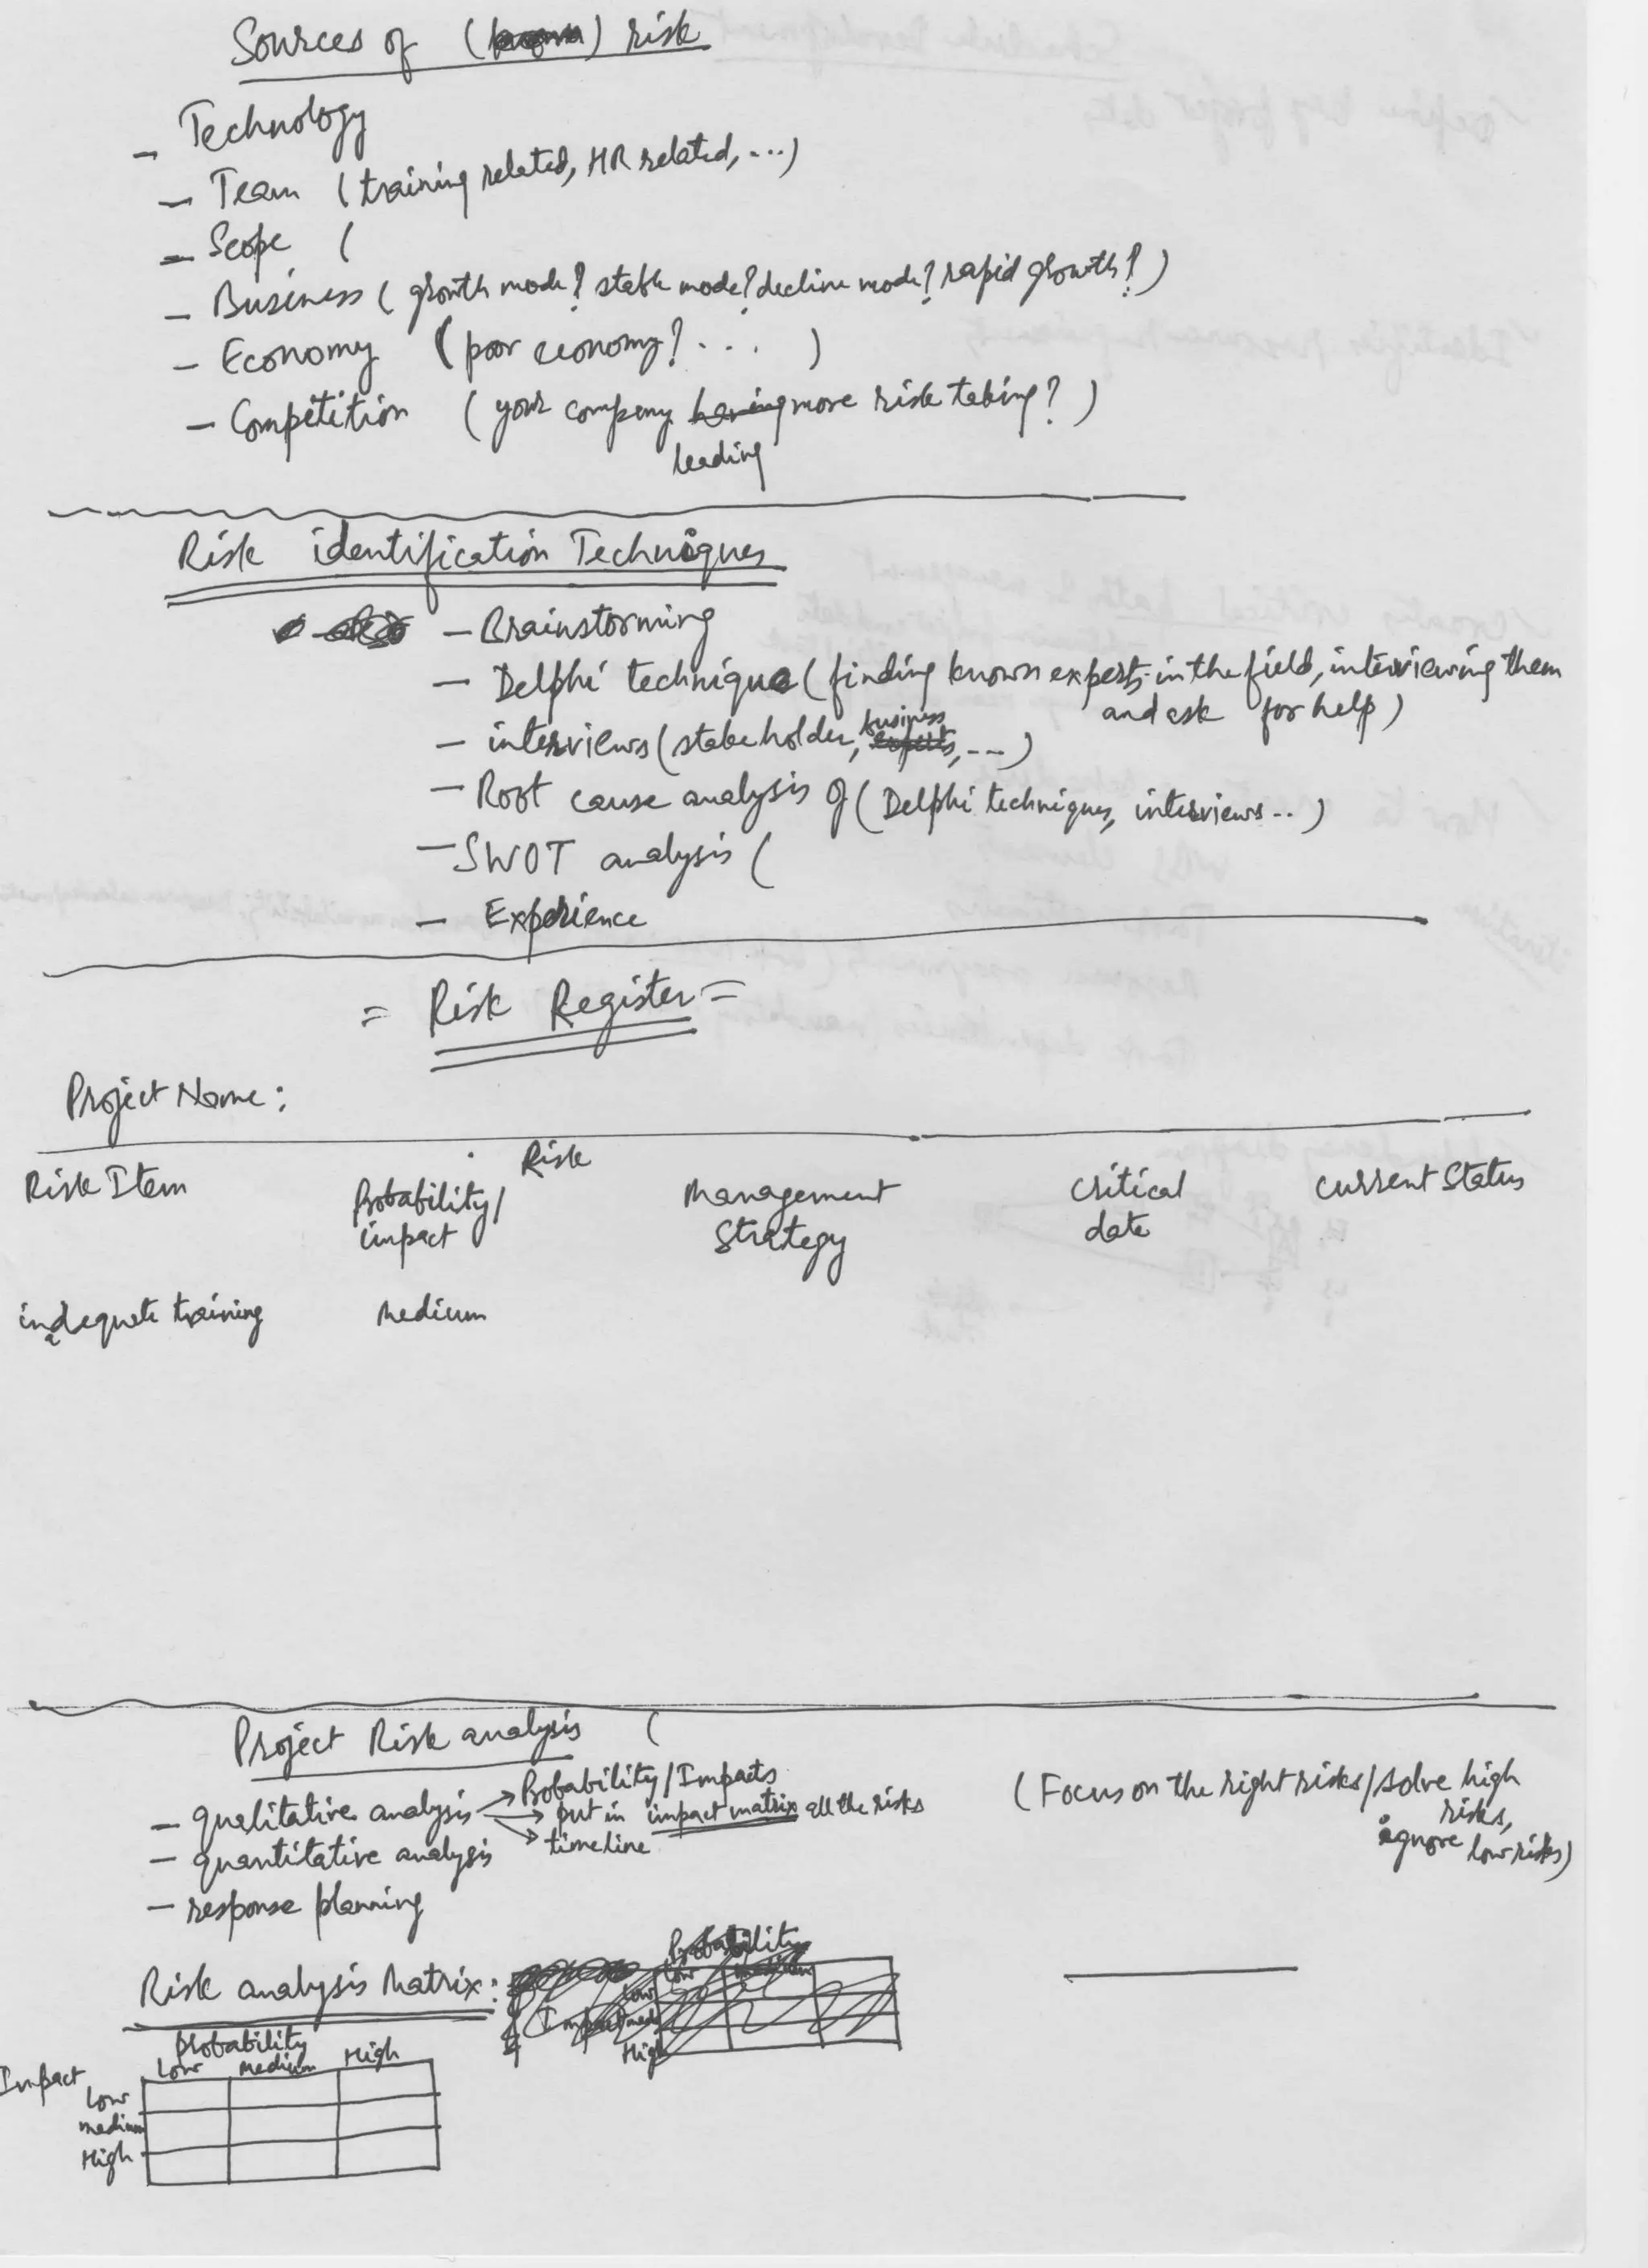 Sources of ( ) risk
- Technology
- Team (training related, HR related, ...)
- Scope (
- Business (growth mode? stable mode? decline mode? rapid growth?)
- Economy (poor economy? ... )
- Competition (your company having more risk taking?)
leading
Risk identification Techniques
- Brainstorming
- Delphi technique (finding known experts in the field, interviewing them
and ask for help)
business
- interviews (stakeholder, experts, ...)
- Root cause analysis of (Delphi techniques, interviews..)
- SWOT analysis (
- Experience
= Risk Register =
Project Name:
Risk
Risk Item Probability/ Management Critical current Status
impact Strategy date
inadequate training Medium
Project Risk analysis (
- qualitative analysis → Probability/Impacts (Focus on the right risks/solve high
→ put in impact matrix all the risks risks,
→ timeline ignore low risks)
- quantitative analysis
- response planning
Probability
Risk analysis Matrix: Low medium
Low
Impact med
High
Probability
Impact Low medium High
Low
medium
High